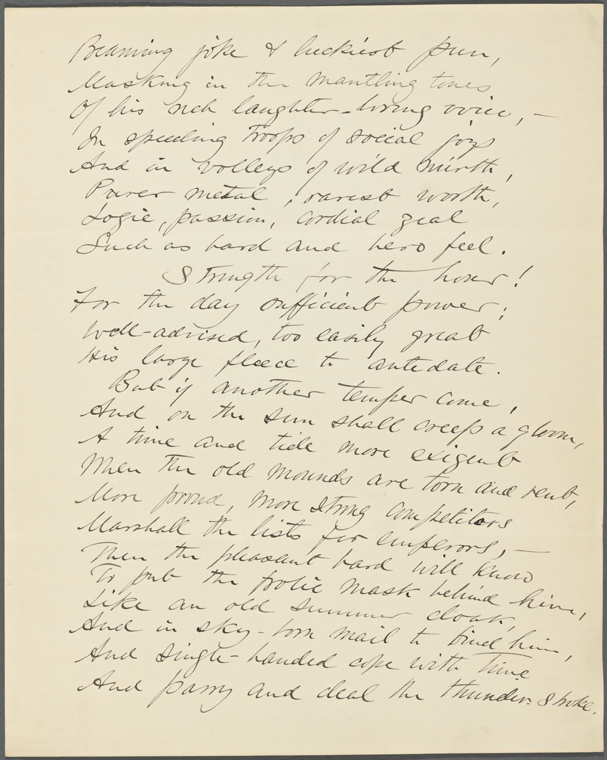 Beaming joke & luckiest pun,
Masking in the mantling tones
Of his rich laughter-loving voice,—
In speeding troops of social joys
And in volleys of wild mirth,
Purer metal, rarest worth,
Logic, passion, cordial zeal
Such as bard and hero feel.
Strength for the hour!
For the day sufficient power;
Well-advised, too easily great
His large fleece to antedate.
But if another temper come,
And on the sun shall creep a gloom,
A time and tide more exigent
When the old mounds are torn and rent,
More proud, more strong competitors
Marshall the lists for emperors,—
Then the pleasant bard will know
To put the frolic mask behind him,
Like an old summer cloak,
And in sky-born mail to bind him,
And single-handed cope with Time
And parry and deal the thunder-stroke.